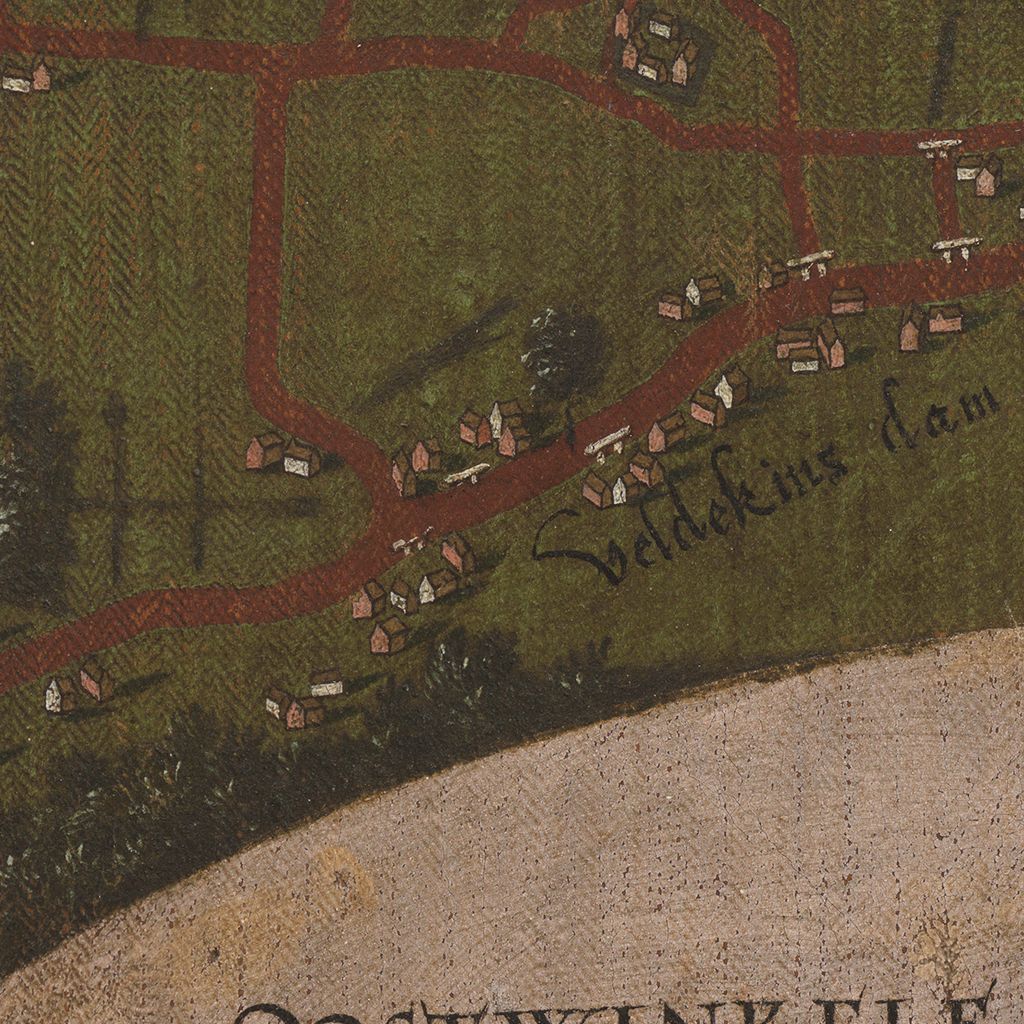 Veldekins dam
OOSTWINKELE